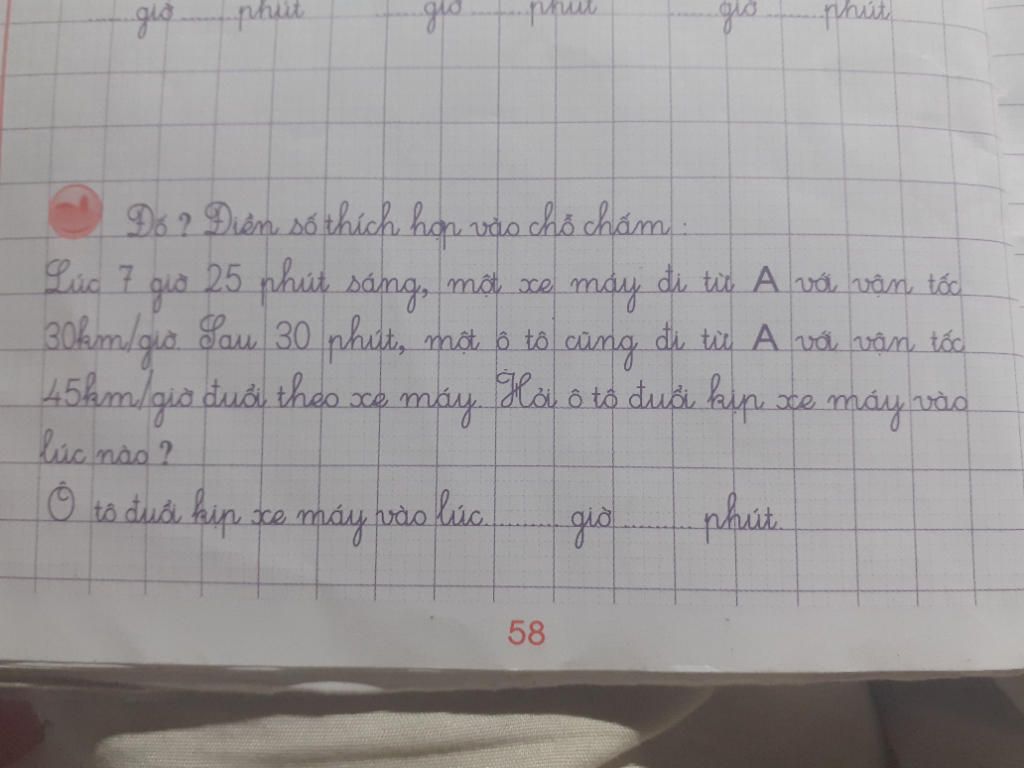 giờ ........ phút ........ giờ ........ phút ........ giờ ........ phút
Đố ? Điền số thích hợp vào chỗ chấm :
Lúc 7 giờ 25 phút sáng, một xe máy đi từ A với vận tốc
30km/giờ Sau 30 phút, một ô tô cũng đi từ A với vận tốc
45km/giờ đuổi theo xe máy. Hỏi ô tô đuổi kịp xe máy vào
lúc nào ?
Ô tô đuổi kịp xe máy vào lúc ........ giờ ........ phút.
58